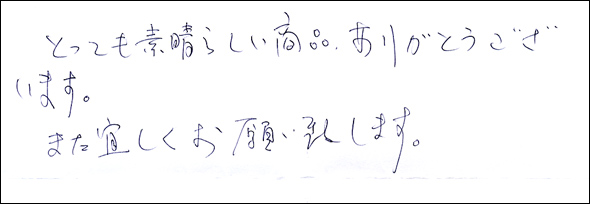 とっても素晴らしい商品、ありがとうござ
います。
また宜しくお願い致します。